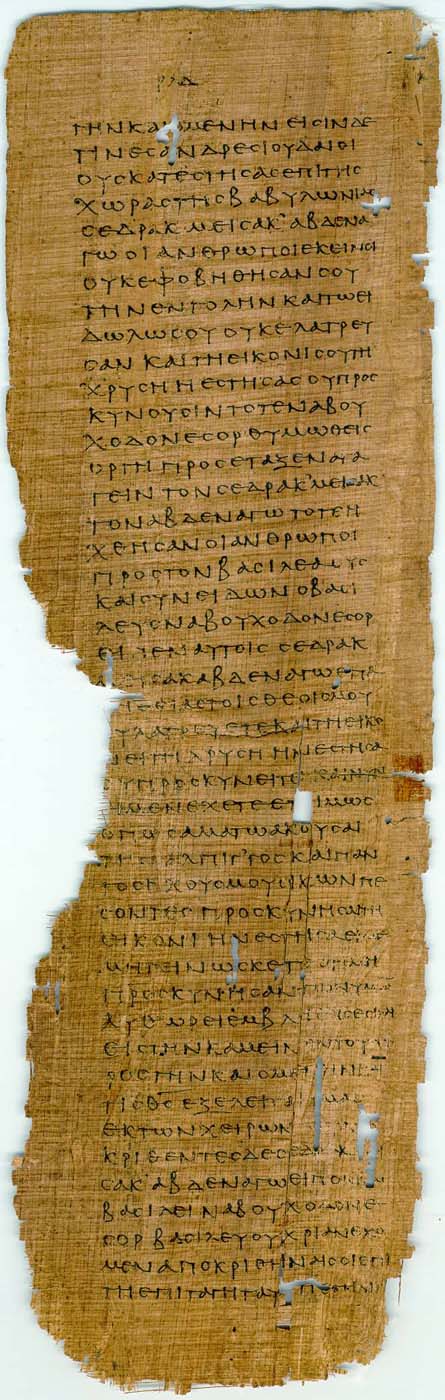 ΤΗΝΚΑΙΟΜΕΝΗΝΕΙϹΙΝΔΕ
ΤΙΝΕϹΑΝΔΡΕϹΙΟΥΔΑΙΟΙ
ΟΥϹΚΑΤΕϹΤΗϹΑϹΕΠΙΤΗϹ
ΧΩΡΑϹΤΗϹΒΑΒΥΛΩΝΙΑϹ
ϹΕΔΡΑΚ ΜΕΙϹΑΚ᾽ΑΒΔΕΝΑ
ΓΩΟΙΑΝΘΡΩΠΟΙΕΚΕΙΝΟΙ
ΟΥΚΕΦΟΒΗΘΗϹΑΝϹΟΥ
ΤΗΝΕΝΤΟΛΗΝΚΑΙΤΩΕΙ
ΔΩΛΩϹΟΥΟΥΚΕΛΑΤΡΕΥ
ϹΑΝΚΑΙΤΗΕΙΚΟΝΙϹΟΥΤΗ
ΧΡΥϹΗΗΕϹΤΗϹΑϹΟΥΠΡΟϹ
ΚΥΝΟΥϹΙΝΤΟΤΕΝΑΒΟΥ
ΧΟΔΟΝΕϹΟΡΘΥΜΩΘΕΙϹ
ΟΡΓΗΠΡΟϹΕΤΑΞΕΝΑΓΑ
ΓΕΙΝΤΟΝϹΕΔΡΑΚ᾽ΜΕΙϹΑΚ
ΤΟΝΑΒΔΕΝΑΓΩΤΟΤΕΗ
ΧΘΗϹΑΝΟΙΑΝΘΡΩΠΟΙ
ΠΡΟϹΤΟΝΒΑϹΙΛΕΑΟΥϹ
ΚΑΙϹΥΝΕΙΔΩΝΟΒΑϹΙ
ΛΕΥϹΝΑΒΟΥΧΟΔΟΝΕϹΟΡ
ΕΙΠΕΝΑΥΤΟΙϹϹΕΔΡΑΚ
ϹΑΚΑΒΔΕΝΑΓΩ
ΤΟΙϹΘΕΟΙϹΜΟΥ
ΛΑΤΡΕΥΕΤΕΚΑΙΤΗΕΙΚΟ
ΧΡΥϹΗΗΝΕϹΤΗϹΑ
ΠΡΟϹΚΥΝΕΙΤΕΚΑΙΝΥΝ
ΕΧΕΤΕΕΤΟΙΜΩϹ
ΑΜΑΤΩΑΚΟΥϹΑΙ
ϹΑΛΠΙΓΓΟϹΚΑΙΠΑΝ
ΤΟϹΗΧΟΥϹΜΟΥϹΙΚΩΝΠΕ
ϹΟΝΤΕϹΠΡΟϹΚΥΝΗϹΑΙΤΗ
ΕΙΚΟΝΙΗΝΕϹΤΗϹΑ
ΠΡΟϹΚΥΝΗϹΑΝΤΩΝΥΜΩΝ
ΕΙϹΤΗΝΚΑΜΕΙΝΟΝΤΟΥΠΥ
ΡΟϹΤΗΝΚΑΙΟΜΕΝΗΝΚΑΙ
ΘϹΕΞΕΛΕΙ
ΕΚΤΩΝΧΕΙΡΩΝ
ΚΡΙΘΕΝΤΕϹΔΕϹΕΔΡΑΚ
ϹΑΚ᾽ΑΒΔΕΝΑΓΩΕΙΠΟΝ
ΒΑϹΙΛΕΙΝΑΒΟΥΧΟΔΟΝΕ
ϹΟΡΒΑϹΙΛΕΥΟΥΧΡΙΑΝΕΧΟ
ΜΕΝΑΠΟΚΡΙΘΗΝΑΙϹΟΙΕΠΙ
ΤΗΕΠΙΤΑΓΗΤΑΥΤΗ